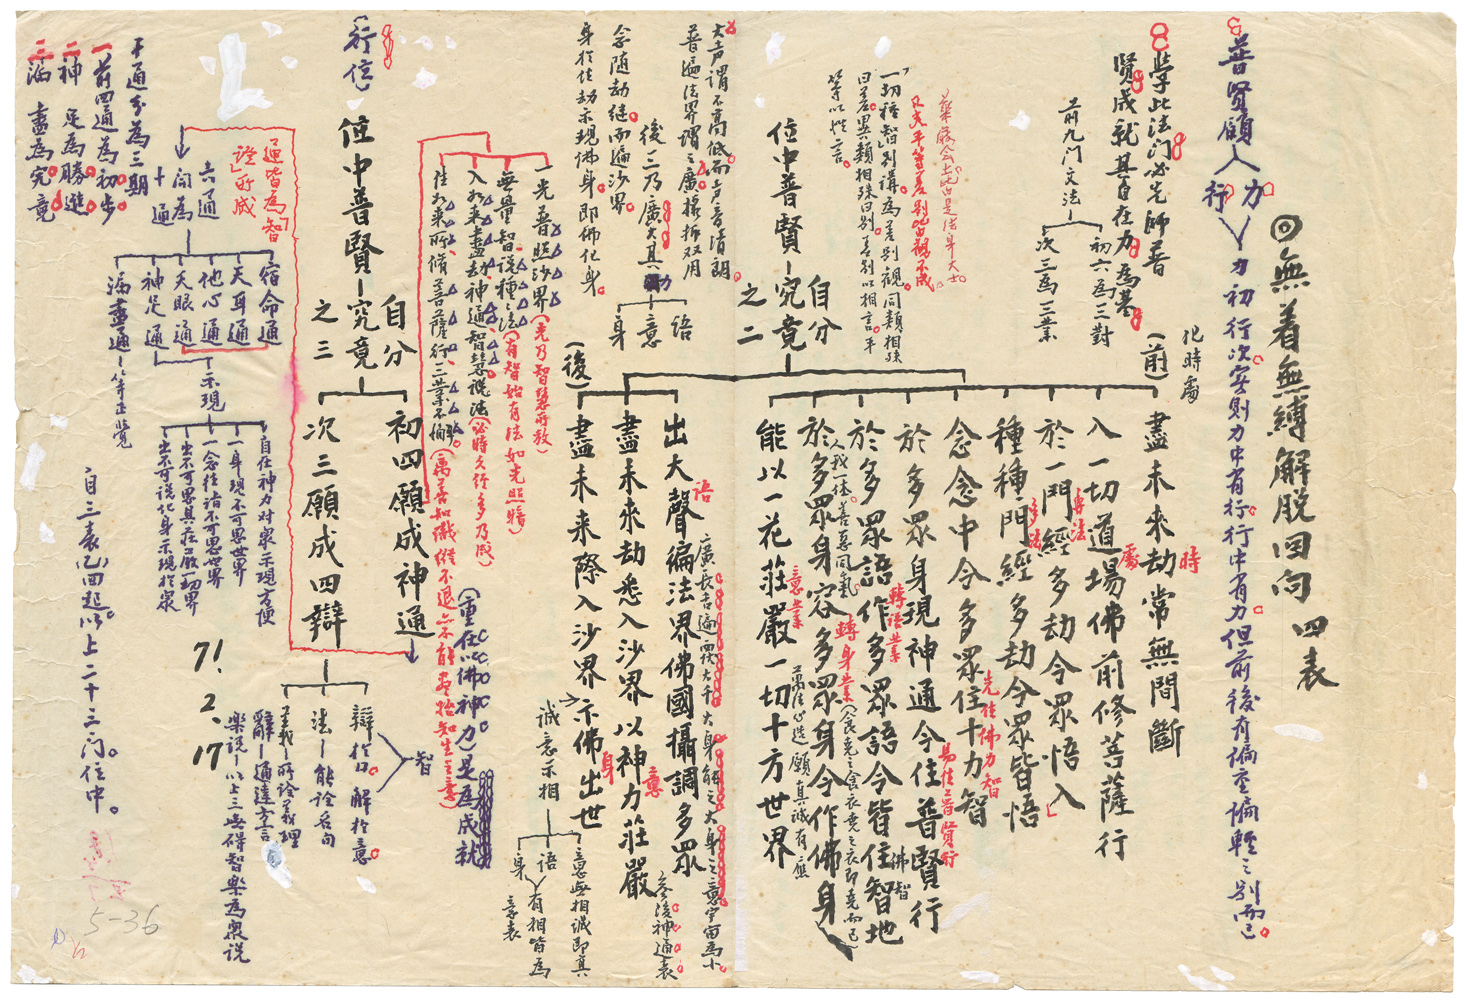 ◎無着無縛解脱回向 四表
普賢願行力
力初行次。實則力中有行。行中有力。但前後有偏重偏輕之別而已。
學此法門必先師普
賢。成就其自在力為基。
前九門文法
初六為三對
次三為三業
(前)
化時處
盡未來劫常無間斷
時
入一切道場佛前修菩薩行
處
於一門經多劫令眾悟入
種種門經多劫令眾皆悟
念念中令多眾住十力智
先住佛力智
於多眾身現神通令住普賢行
易住普賢行
於多眾語作多眾語令皆住智地
轉語業
佛智
於多眾身容多眾身令作佛身
轉身業
人我一体。善惡同氣
(食堯之食衣堯之衣即堯而已)
能以一花莊嚴一切十方世界
意業
萬法心造 願真誠有應
位中普賢
究竟
自分
之二
華嚴會士皆是法身大士。
又先平等差別皆觀不成。
一切種智別講。為差別觀。同類相殊
曰差。異類相殊曰別。差別以相言。平
等以性言。
大声謂不高低而声音清朗。
普遍法界謂之廣。據拆双用
後三乃廣大其力
語
意
身
念隨劫继而遍沙界。
身於住劫示現佛身。即佛化身。
(後)
出大聲徧法界佛國攝調多眾
語
廣長舌遍覆大千大身解之大身之意宇宙為小
盡未來劫悉入沙界以神力莊嚴
意
參後神通表
盡未來際入沙界示佛出世
身
誠意示相
意無相誠即真
語
身
有相皆為
意表
位中普賢
究竟
自分
之三
初四願成神通
次三願成四辯
一光普照沙界(光乃智慧所放)
無量智說種種法(有智始有法如光照暗)
入如來盡劫神通智慧說法(必時久行多乃成)
住如來所脩菩薩行三業不倫。(萬善如織維不退亦不能盡攝知生主意)
(重在以佛神力)是為成就
(行位)
通皆為「智
證」所成
六通
開為
十通
宿命通
天耳通
他心通
天眼通
神足通
漏盡通－等正覺
示現
自在神力对眾示現方便
一身現不可畏世界
一念往詣不可思世界
出不可說化身示現於眾
十通分為三期
一前四通為初步
二神足為勝進
三漏盡為究竟
辯於口。解於意。
智
法－能詮名句
義－所詮義理
辭－通達方言
樂說－以上三無碍智樂為眾說
自三表乙四起。以上二十三门。住中。
71.
2、
17
5-36